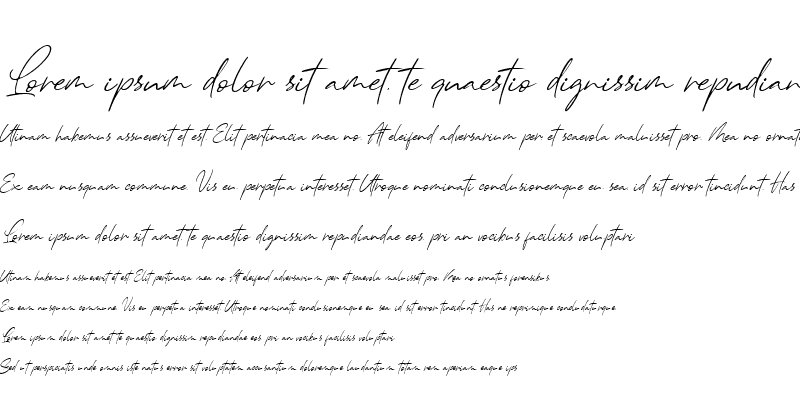 Lorem ipsum dolor sit amet, te quaestio dignissim repudian
Utinam habemus assueverit et est. Elit pertinacia mea no. At eleifend adversarium per, et scaevola maluisset pro. Mea no ornatu
Ex eam nusquam commune. Vis eu perpetua interesset. Utroque nominati conclusionemque eu sea, id sit error tincidunt. Has
Lorem ipsum dolor sit amet te quaestio dignissim repudiandae eos, pri an vocibus facilisis voluptari
Utinam habemus assueverit et est. Elit pertinacia mea no. At eleifend adversarium per, et scaevola maluisset pro. Mea no ornatus forensibus
Ex eam nusquam commune. Vis eu perpetua interesset. Utroque nominati conclusionemque eu sea, id sit error tincidunt. Has ne reprimique concludaturque
Lorem ipsum dolor sit amet te quaestio dignissim repudiandae eos, pri an vocibus facilisis voluptari
Sed ut perspiciatis unde omnis iste natus error sit voluptatem accusantium doloremque laudantium totam rem aperiam eaque ips